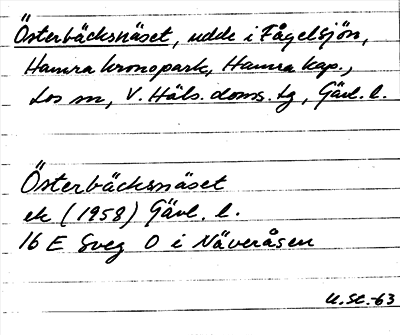 Österbäcksnäset, udde i Fågelsjön,
Hamra kronopark, Hamra kap.,
Los sn, V. Häls. doms. tg, Gävl. l.
Österbäcksnäset
ek (1958) Gävl. l.
16 E Sveg O i Näveråsen
U.Sc.-63